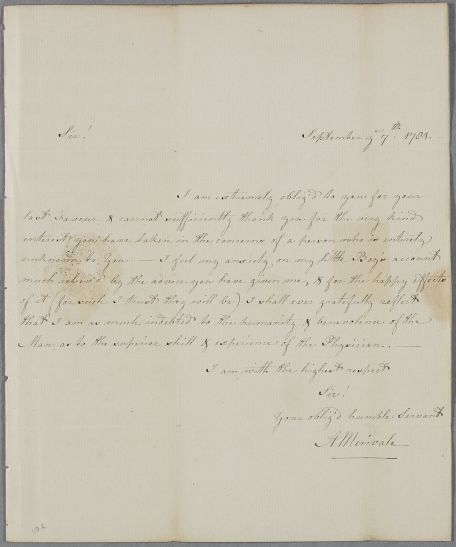 Sir! September ye 7th. 1781.
I am extremely oblig'd to you for your
last Favour & cannot sufficiently thank you for the very kind
interest you have taken in the concerns of a person who is entirely
unknown to you — I feel my anxiety on my little Boy's account
much reliev'd by the advice you have given me, & for the happy effects
of it (for such I trust they will be) I shall ever gratefully reflect
that I am as much indebted to the humanity & benevolence of the
Man as to the superior skill & experience of the Physician. —
I am with the highest respect
Sir!
Your oblig'd humble Servant
A Merivale